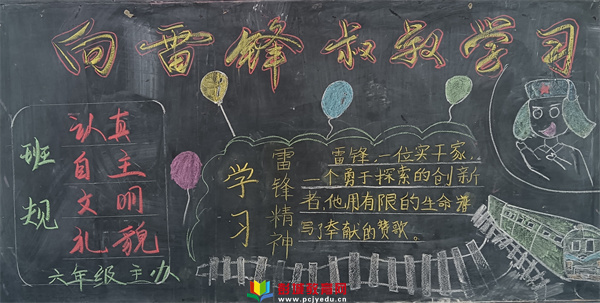 向雷锋叔叔学习
班规
认真
自主
文明
礼貌
六年级主办
学习
雷锋精神
雷锋,一位实干家,
一个勇于探索的创新
者,他用有限的生命谱
写了奉献的赞歌。
www.pcjyedu.cn